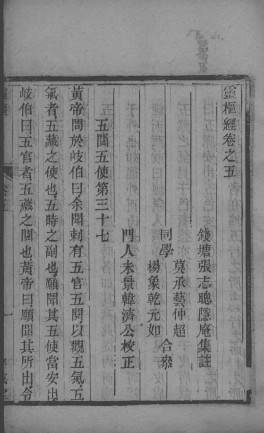 靈樞經卷之五
錢塘張志聰隱庵集註
同學
莫承藝仲超
楊象乾元如
合叅
門人朱景韓濟公校正
五閱五使第三十七
黃帝問於岐伯曰余聞刺有五官五閱以觀五氣五
氣者五藏之使也五時之副也願聞其五使當安出
岐伯曰五官者五藏之閱也黃帝曰願聞其所出令